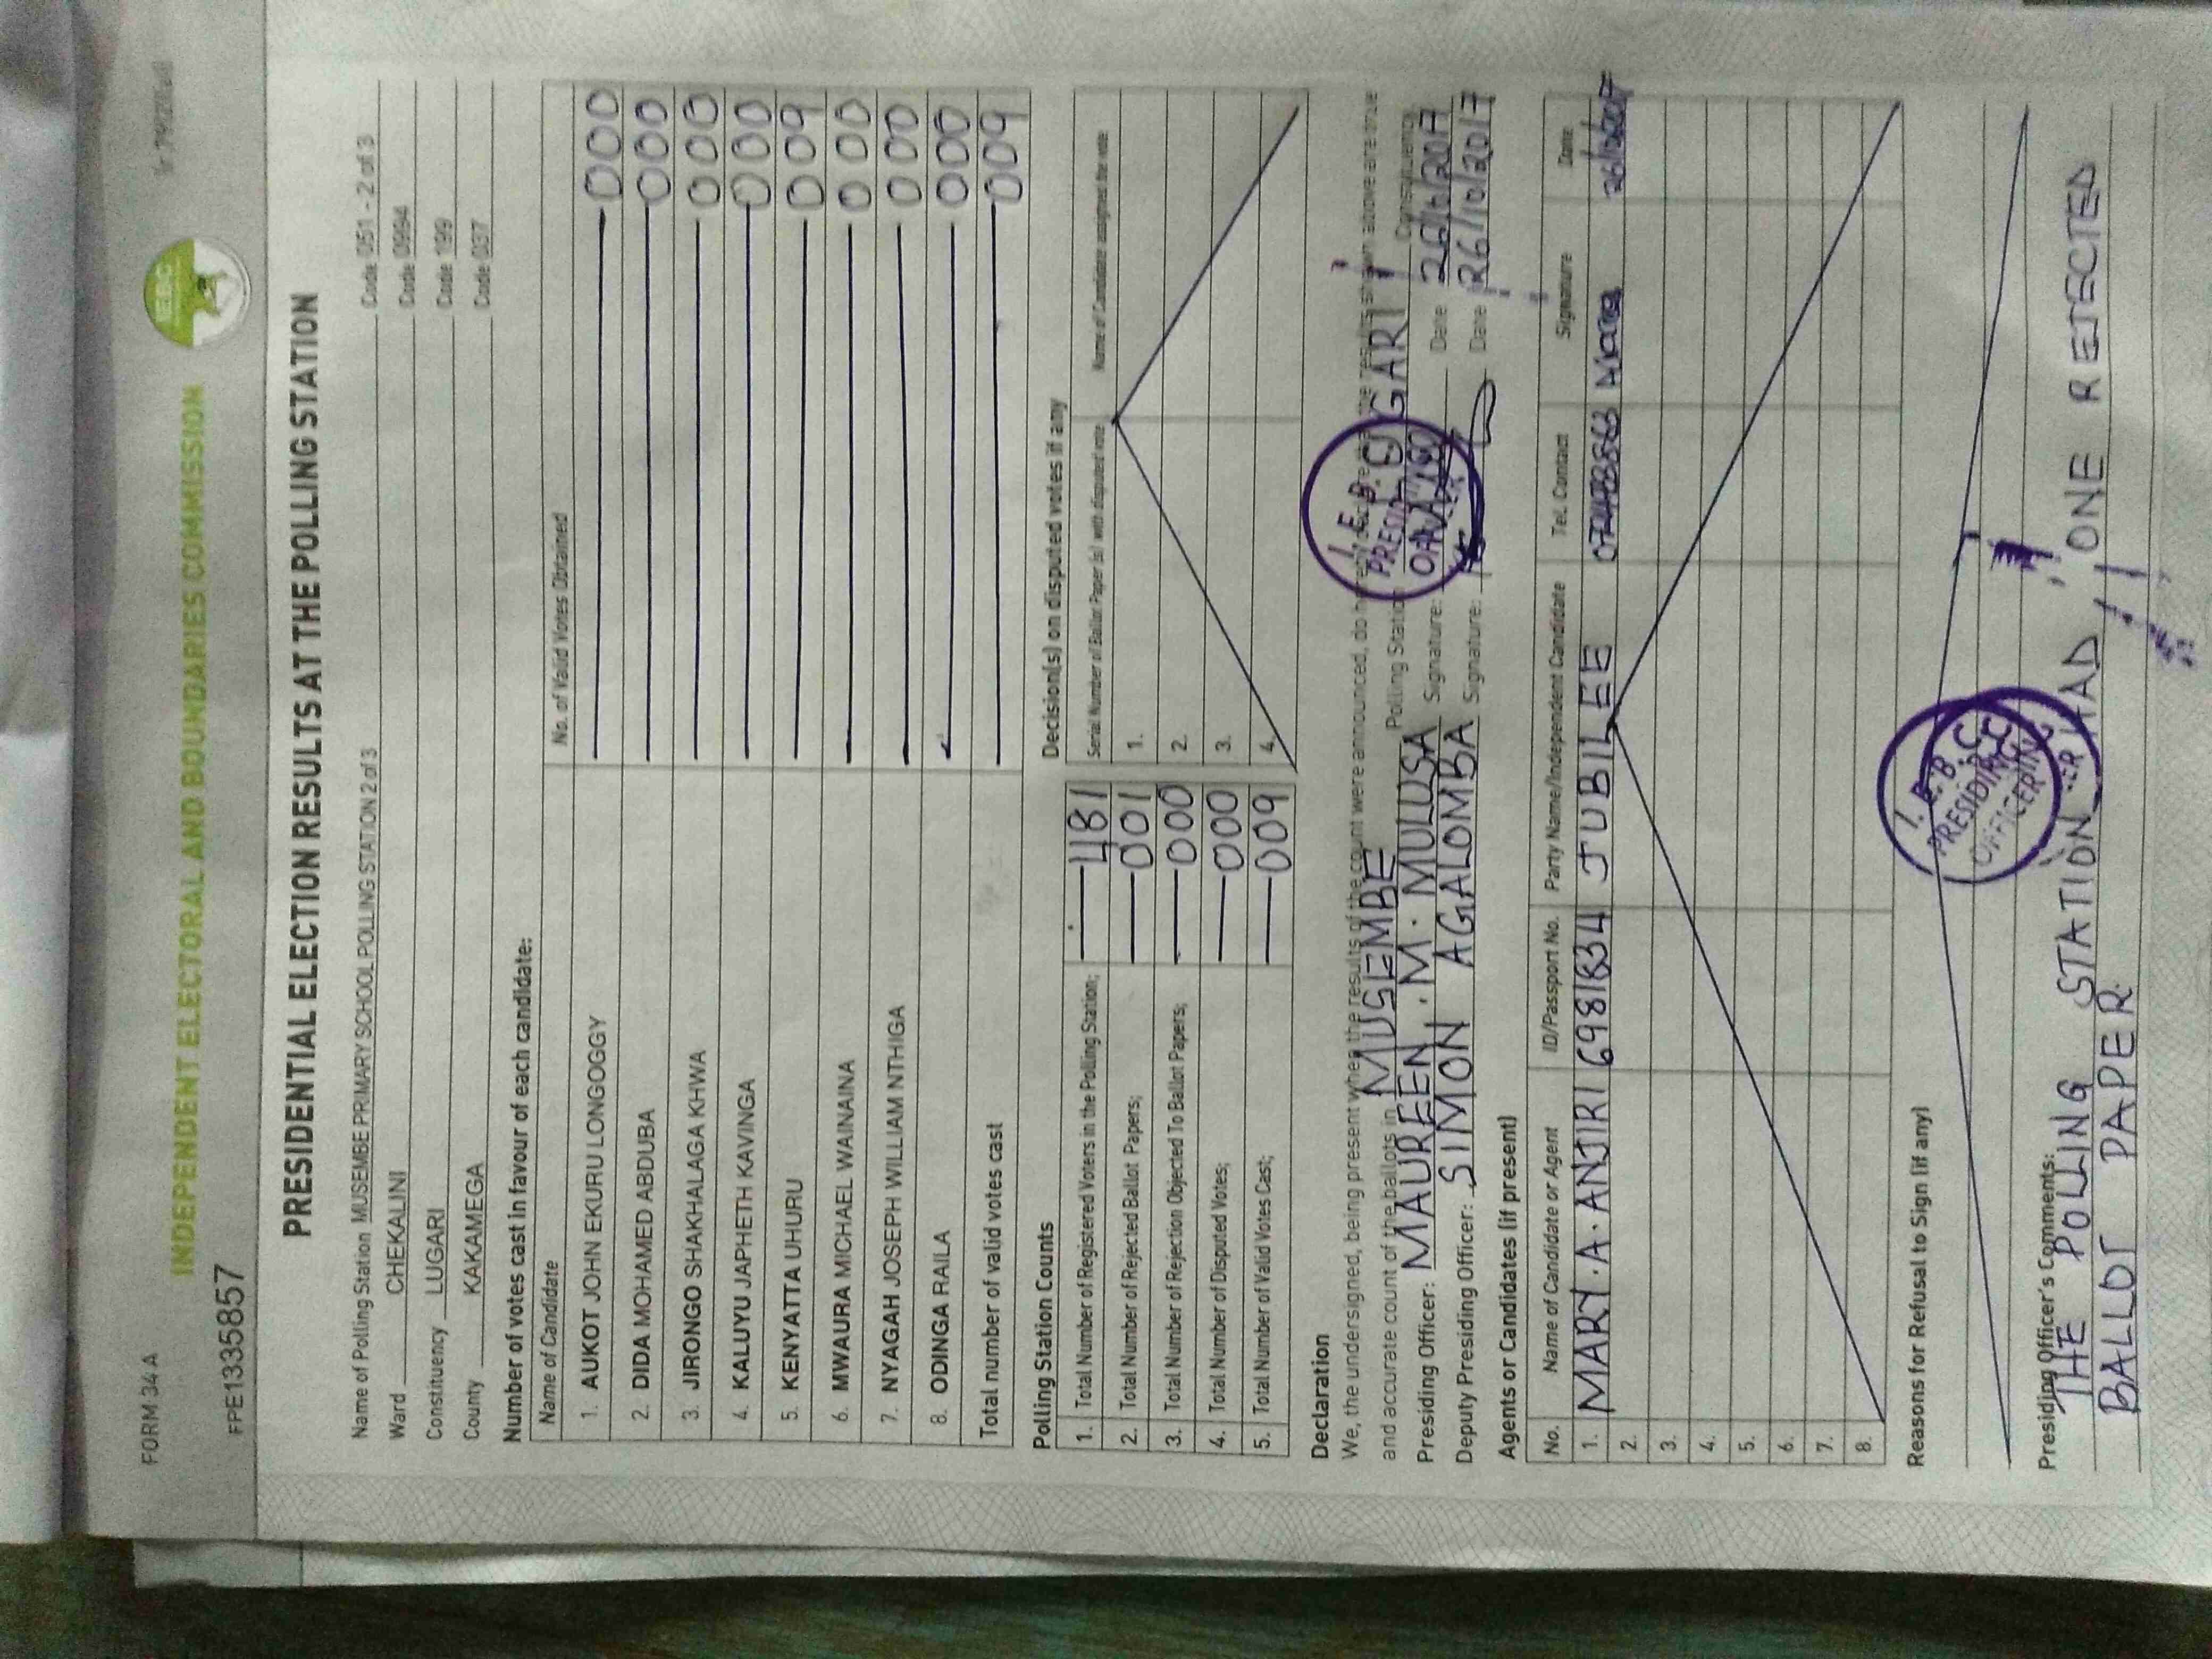 FORM 34 A
INDEPENDENT ELECTORAL AND BOUNDARIES COMMISSION
IEBC
FPE1335857
PRESIDENTIAL ELECTION RESULTS AT THE POLLING STATION
Name of Polling Station MUSEMBE PRIMARY SCHOOL POLLING STATION 2 of 3 Code 051 - 2 of 3
Ward CHEKALINI Code 0994
Constituency LUGARI Code 199
County KAKAMEGA Code 037
Number of votes cast in favour of each candidate:
Name of Candidate No. of Valid Votes Obtained
1. AUKOT JOHN EKURU LONGOGGY 000
2. DIDA MOHAMED ABDUBA 000
3. JIRONGO SHAKHALAGA KHWA 000
4. KALUYU JAPHETH KAVINGA 000
5. KENYATTA UHURU 009
6. MWAURA MICHAEL WAINAINA 000
7. NYAGAH JOSEPH WILLIAM NTHIGA 000
8. ODINGA RAILA 000
Total number of valid votes cast 009
Polling Station Counts
1. Total Number of Registered Voters in the Polling Station; 481
2. Total Number of Rejected Ballot Papers; 001
3. Total Number of Rejection Objected To Ballot Papers; 000
4. Total Number of Disputed Votes; 000
5. Total Number of Valid Votes Cast; 009
Decision(s) on disputed votes if any
Serial Number of Ballot Paper (s) with disputed vote Name of Candidate assigned the vote
1.
2.
3.
4.
Declaration
We, the undersigned, being present when the results of the count were announced, do hereby above are true
and accurate count of the ballots in MUSEMBE Polling Station LUGARI Constituency
Presiding Officer: MAUREEN .M. MULUSA Signature: Date 26/10/2017
Deputy Presiding Officer: SIMON AGALOMBA Signature: Date 26/10/2017
I.E.B.C
PRESIDING
OFFICER
Agents or Candidates (if present)
No. Name of Candidate or Agent ID/Passport No. Party Name/Independent Candidate Tel. Contact Signature Date
1. MARY.A.ANJIRI 6981834 JUBILEE
2.
3.
4.
5.
6.
7.
8.
Reasons for Refusal to Sign (if any)
I.E.B.C
PRESIDING
OFFICER
Presiding Officer's Comments:
THE POLLING STATION HAD ONE REJECTED
BALLOT PAPER.